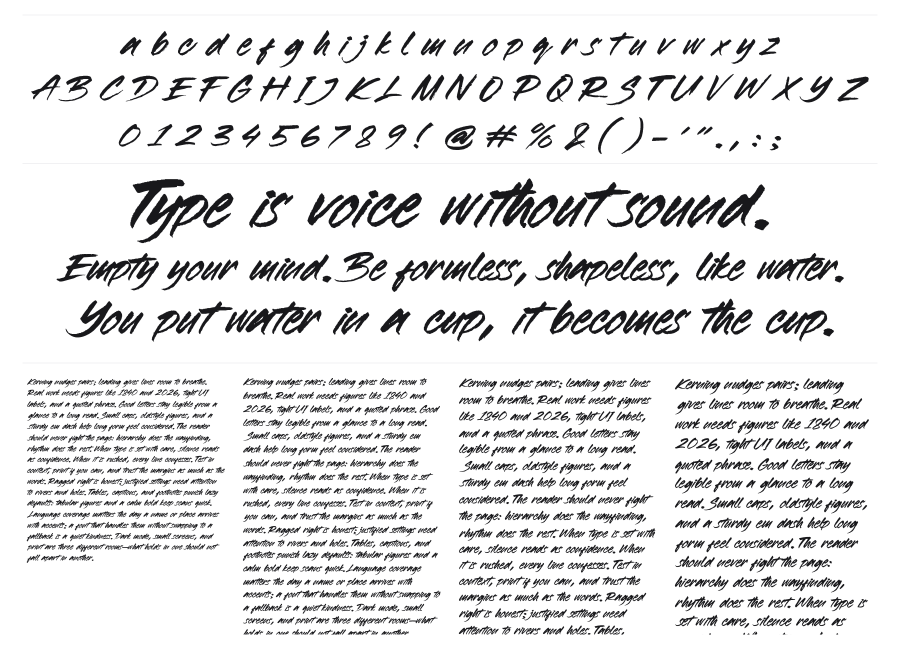 a b c d e f g h i j k l m n o p q r s t u v w x y z
A B C D E F G H I J K L M N O P Q R S T U V W X Y Z
0 1 2 3 4 5 6 7 8 9 ! @ # % & ( ) - ' " . , : ;
Type is voice without sound.
Empty your mind. Be formless, shapeless, like water.
You put water in a cup, it becomes the cup.
Kerning nudges pairs; leading gives lines room to breathe.
Real work needs figures like 1840 and 2026, tight UI
labels, and a quoted phrase. Good letters stay legible from a
glance to a long read. Small caps, oldstyle figures, and a
sturdy em dash help long form feel considered. The reader
should never fight the page: hierarchy does the wayfinding,
rhythm does the rest. When type is set with care, silence reads
as confidence. When it is rushed, every line confesses. Test in
context, print if you can, and trust the margins as much as the
words. Ragged right is honest; justified settings need attention
to rivers and holes. Tables, captions, and footnotes punish lazy
defaults: tabular figures and a calm bold keep scans quick.
Language coverage matters the day a name or place arrives
with accents; a font that handles them without swapping to a
fallback is a quiet kindness. Dark mode, small screens, and
print are three different rooms—what holds in one should not
fall apart in another.
Kerning nudges pairs; leading gives lines room to
breathe. Real work needs figures like 1840 and
2026, tight UI labels, and a quoted phrase. Good
letters stay legible from a glance to a long read.
Small caps, oldstyle figures, and a sturdy em
dash help long form feel considered. The reader
should never fight the page: hierarchy does the
wayfinding, rhythm does the rest. When type is set
with care, silence reads as confidence. When it is
rushed, every line confesses. Test in context, print if
you can, and trust the margins as much as the
words. Ragged right is honest; justified settings need
attention to rivers and holes. Tables, captions, and
footnotes punish lazy defaults: tabular figures and a
calm bold keep scans quick. Language coverage
matters the day a name or place arrives with
accents; a font that handles them without swapping to
a fallback is a quiet kindness. Dark mode, small
screens, and print are three different rooms—what
holds in one should not fall apart in another.
Kerning nudges pairs; leading gives lines
room to breathe. Real work needs figures
like 1840 and 2026, tight UI labels,
and a quoted phrase. Good letters stay
legible from a glance to a long read.
Small caps, oldstyle figures, and a
sturdy em dash help long form feel
considered. The reader should never fight
the page: hierarchy does the wayfinding,
rhythm does the rest. When type is set with
care, silence reads as confidence. When
it is rushed, every line confesses. Test in
context, print if you can, and trust the
margins as much as the words. Ragged
right is honest; justified settings need
attention to rivers and holes. Tables,
Kerning nudges pairs; leading
gives lines room to breathe. Real
work needs figures like 1840 and
2026, tight UI labels, and a
quoted phrase. Good letters stay
legible from a glance to a long
read. Small caps, oldstyle figures,
and a sturdy em dash help long
form feel considered. The reader
should never fight the page:
hierarchy does the wayfinding,
rhythm does the rest. When type is
set with care, silence reads as